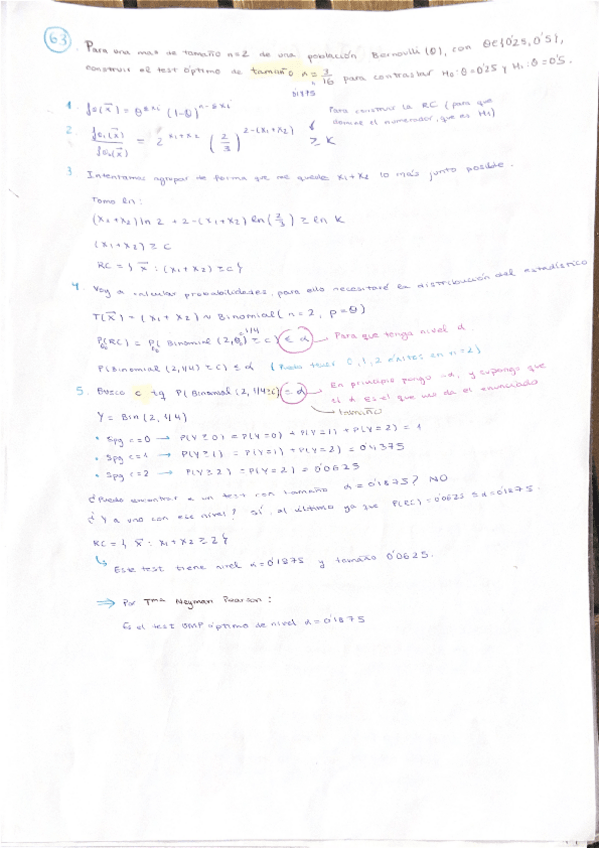 63. Para una mas de tamaño n=2 de una población Bernoulli (θ), con θ∈{0'25, 0'5},
construir el test óptimo de tamaño α = 3/16 para contrastar H0: θ=0'25 y H1: θ=0'5.
0'1875
1. fθ(x⃗) = θ^Σxi (1-θ)^n-Σxi
Para construir la RC (para que
domine el numerador, que es H1)
2. fθ1(x⃗)/fθ0(x⃗) = 2^x1+x2 (2/3)^2-(x1+x2) ≥ K
3 Intentamos agrupar de forma que me quede x1+x2 lo más junto posible.
Tomo ln:
(x1+x2) ln 2 + 2-(x1+x2) ln(2/3) ≥ ln K
(x1+x2) ≥ c
RC = { x⃗ : (x1+x2) ≥ c}
4. Voy a calcular probabilidades, para ello necesitaré la distribución del estadístico
T(x⃗) = (x1+x2) ~ Binomial (n=2, p=θ)
Pθ0(RC) = Pθ0( Binomial (2, θ0) ≥ c) ≤ α → Para que tenga nivel α.
=1/4
P(Binomial (2,1/4) ≥ c) ≤ α (Puedo tener 0,1,2 éxitos en n=2)
5. Busco c tq P( Binomial (2, 1/4 ≥ c) = α
En principio pongo =α, y supongo que
el α es el que nos da el enunciado
tamaño
Y = Bin (2, 1/4)
• Spg c=0 → P(Y≥0) = P(Y=0) + P(Y=1) + P(Y=2) = 1
• Spg c=1 → P(Y≥1) = P(Y=1) + P(Y=2) = 0'4375
• Spg c=2 → P(Y≥2) = P(Y=2) = 0'0625
¿Puedo encontrar a un test con tamaño α = 0'1875? NO
¿Y a uno con ese nivel? Sí, al último ya que P(RC) = 0'0625 ≤ α = 0'1875.
RC = { x⃗ : x1+x2 ≥ 2}
↳ Este test tiene nivel α=0'1875 y tamaño 0'0625.
⇒ Por Tma Neyman Pearson:
Es el test UMP óptimo de nivel α=0'1875